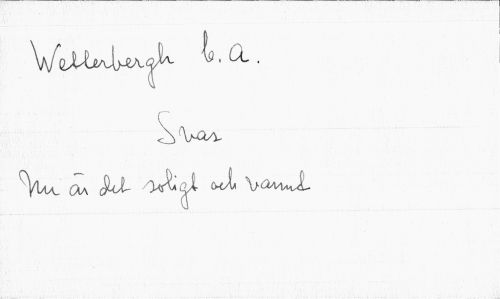 Wetterbergh C. A.
Svar
Nu är det soligt och varmt